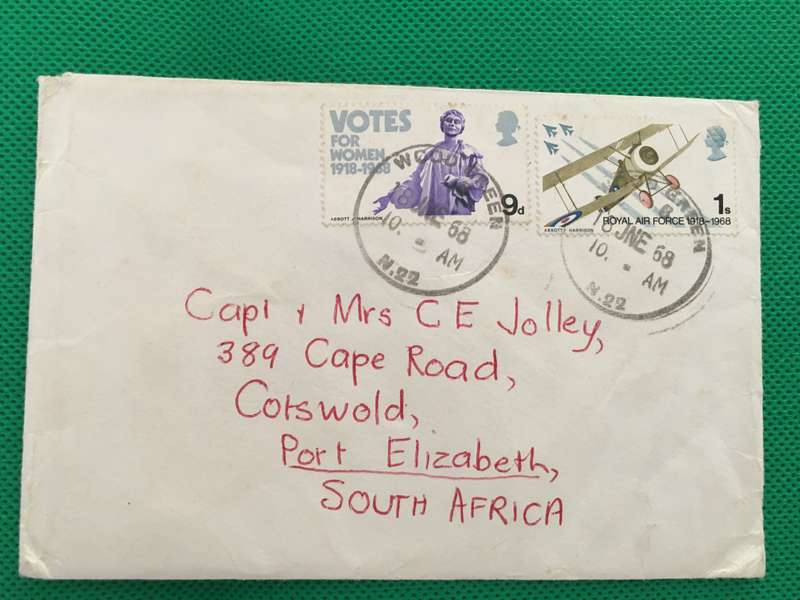 VOTES
FOR
WOMEN
1918-1968
ABBOTT / HARRISON
9d
ROYAL AIR FORCE 1918-1968
ABBOTT HARRISON
1s
WOOD GREEN
18 JNE 68
10. - AM
N.22
GREEN
18 JNE 68
10. - AM
N.22
Capt + Mrs C E Jolley,
389 Cape Road,
Cotswold,
Port Elizabeth,
SOUTH AFRICA